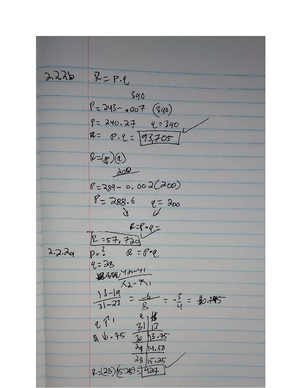 2.2.2b R = P·q
390
P = 243 - .007 (390)
P = 240.27 q = 390
R = P·q = 93,705
R = (P)(q)
200
P = 289 - 0.002 (200)
P = 288.6 q = 200
R = P·q =
R = 57,720
2.2.2a P = ? R = P·q
q = 23
x₂ - x₁
13-19
31-23 = -6
8 = -3
4 =
q ↑ 1
31 13
30 13.75
29 14.50
23